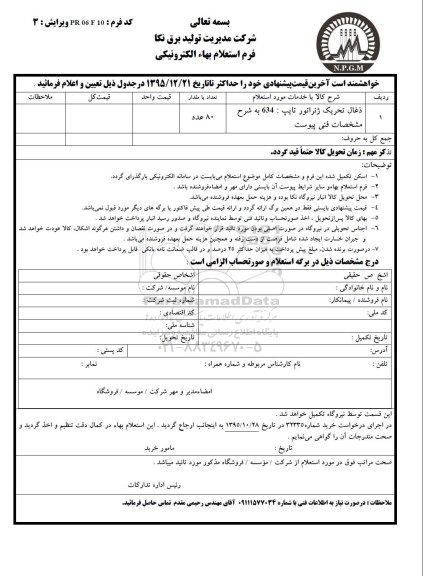 بسمه تعالی
کد فرم : PR 06 F 10 ویرایش : 3
شرکت مدیریت تولید برق نکا
فرم استعلام بهاء الکترونیکی
N.P.G.M
خواهشمند است آخرین قیمت پیشنهادی خود را حداکثر تا تاریخ ۱۳۹۵/۱۲/۲۱ در جدول ذیل تعیین و اعلام فرمائید .
ردیف شرح کالا یا خدمات مورد استعلام تعداد یا مقدار قیمت واحد قیمت کل ملاحظات
۱ ذغال تحریک ژنراتور تایپ : 634 به شرح مشخصات فنی پیوست ۸۰ عدد
جمع کل به حروف:
تذکر مهم : زمان تحویل کالا حتماً قید گردد.
توضیحات:
۱- اسکن تکمیل شده این فرم و مشخصات کامل موضوع استعلام می‌بایست در سامانه الکترونیکی بارگذاری گردد.
۲- فرم استعلام بهاء و سایر شرایط پیوست آن بایستی دارای مهر و امضاء فروشنده باشد .
۳- محل تحویل کالا انبار نیروگاه نکا بوده و هزینه حمل بعهده فروشنده می‌باشد.
۴- قیمت پیشنهادی بایستی فقط در همین برگ ارائه گردد و ارائه قیمت طی پیش فاکتور یا برگه های دیگر مورد قبول نمی‌باشد.
۵- بهای کالا پس از تحویل ، اخذ صورتحساب و تائید فنی توسط نماینده نیروگاه و صدور رسید انبار پرداخت خواهد شد .
۶- اجناس تحویلی در نیروگاه در صورت اصلی بودن مورد تائید قرار خواهند گرفت و در صورت نقصان و داشتن هرگونه اشکال، کالا عودت خواهد شد
و جبران خسارت ایجاد شده شامل فرصت از دست رفته و همچنین هزینه حمل بعهده فروشنده می‌باشد .
۷- درصورت برنده شدن، مبلغ پیش پرداخت به میزان حداکثر ۲۵ درصد و در قالب ضمانت نامه بانکی قابل پرداخت خواهد بود .
درج مشخصات ذیل در برگه استعلام و صورتحساب الزامی است
اشخاص حقیقی اشخاص حقوقی
نام و نام خانوادگی : نام موسسه / شرکت :
نام فروشنده / پیمانکار: شماره ثبت شرکت:
کد ملی: کد اقتصادی :
شناسه ملی:
تاریخ تکمیل : تاریخ تحویل:
آدرس: کد پستی :
تلفن : نام کارشناس مربوطه و شماره همراه : نمابر :
امضاء مدیر و مهر شرکت / موسسه / فروشگاه
پایگاه اطلاع رسانی
۰۲۱-۸۸۳۴۹۶۷۰-۵
این قسمت توسط نیروگاه تکمیل خواهد شد .
در اجرای درخواست خرید شماره ۳۲۳۳۵ در تاریخ ۱۳۹۵/۱۰/۲۸ به اینجانب ارجاع گردید . این استعلام بهاء در کمال دقت تنظیم و اخذ گردید و
صحت مندرجات آن را گواهی می‌نمایم .
تاریخ : مامور خرید
صحت مراتب فوق در مورد استعلام از شرکت / مؤسسه / فروشگاه مذکور مورد تائید میباشد .
رئیس اداره تدارکات
ملاحظات : درصورت نیاز به اطلاعات فنی با شماره ۰۹۱۱۱۵۷۷۰۳۴ آقای مهندس رحیمی مقدم تماس حاصل فرمائید.